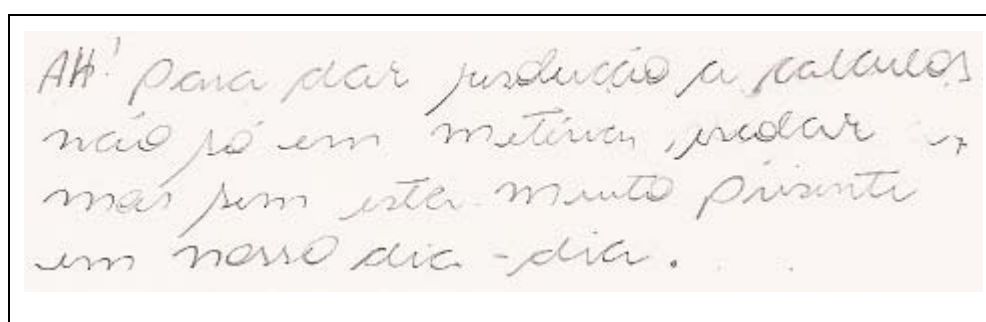 AH! para dar resolução a calculos
não só em matérias, escolar
mas sim esta muito presente
em nosso dia-dia.